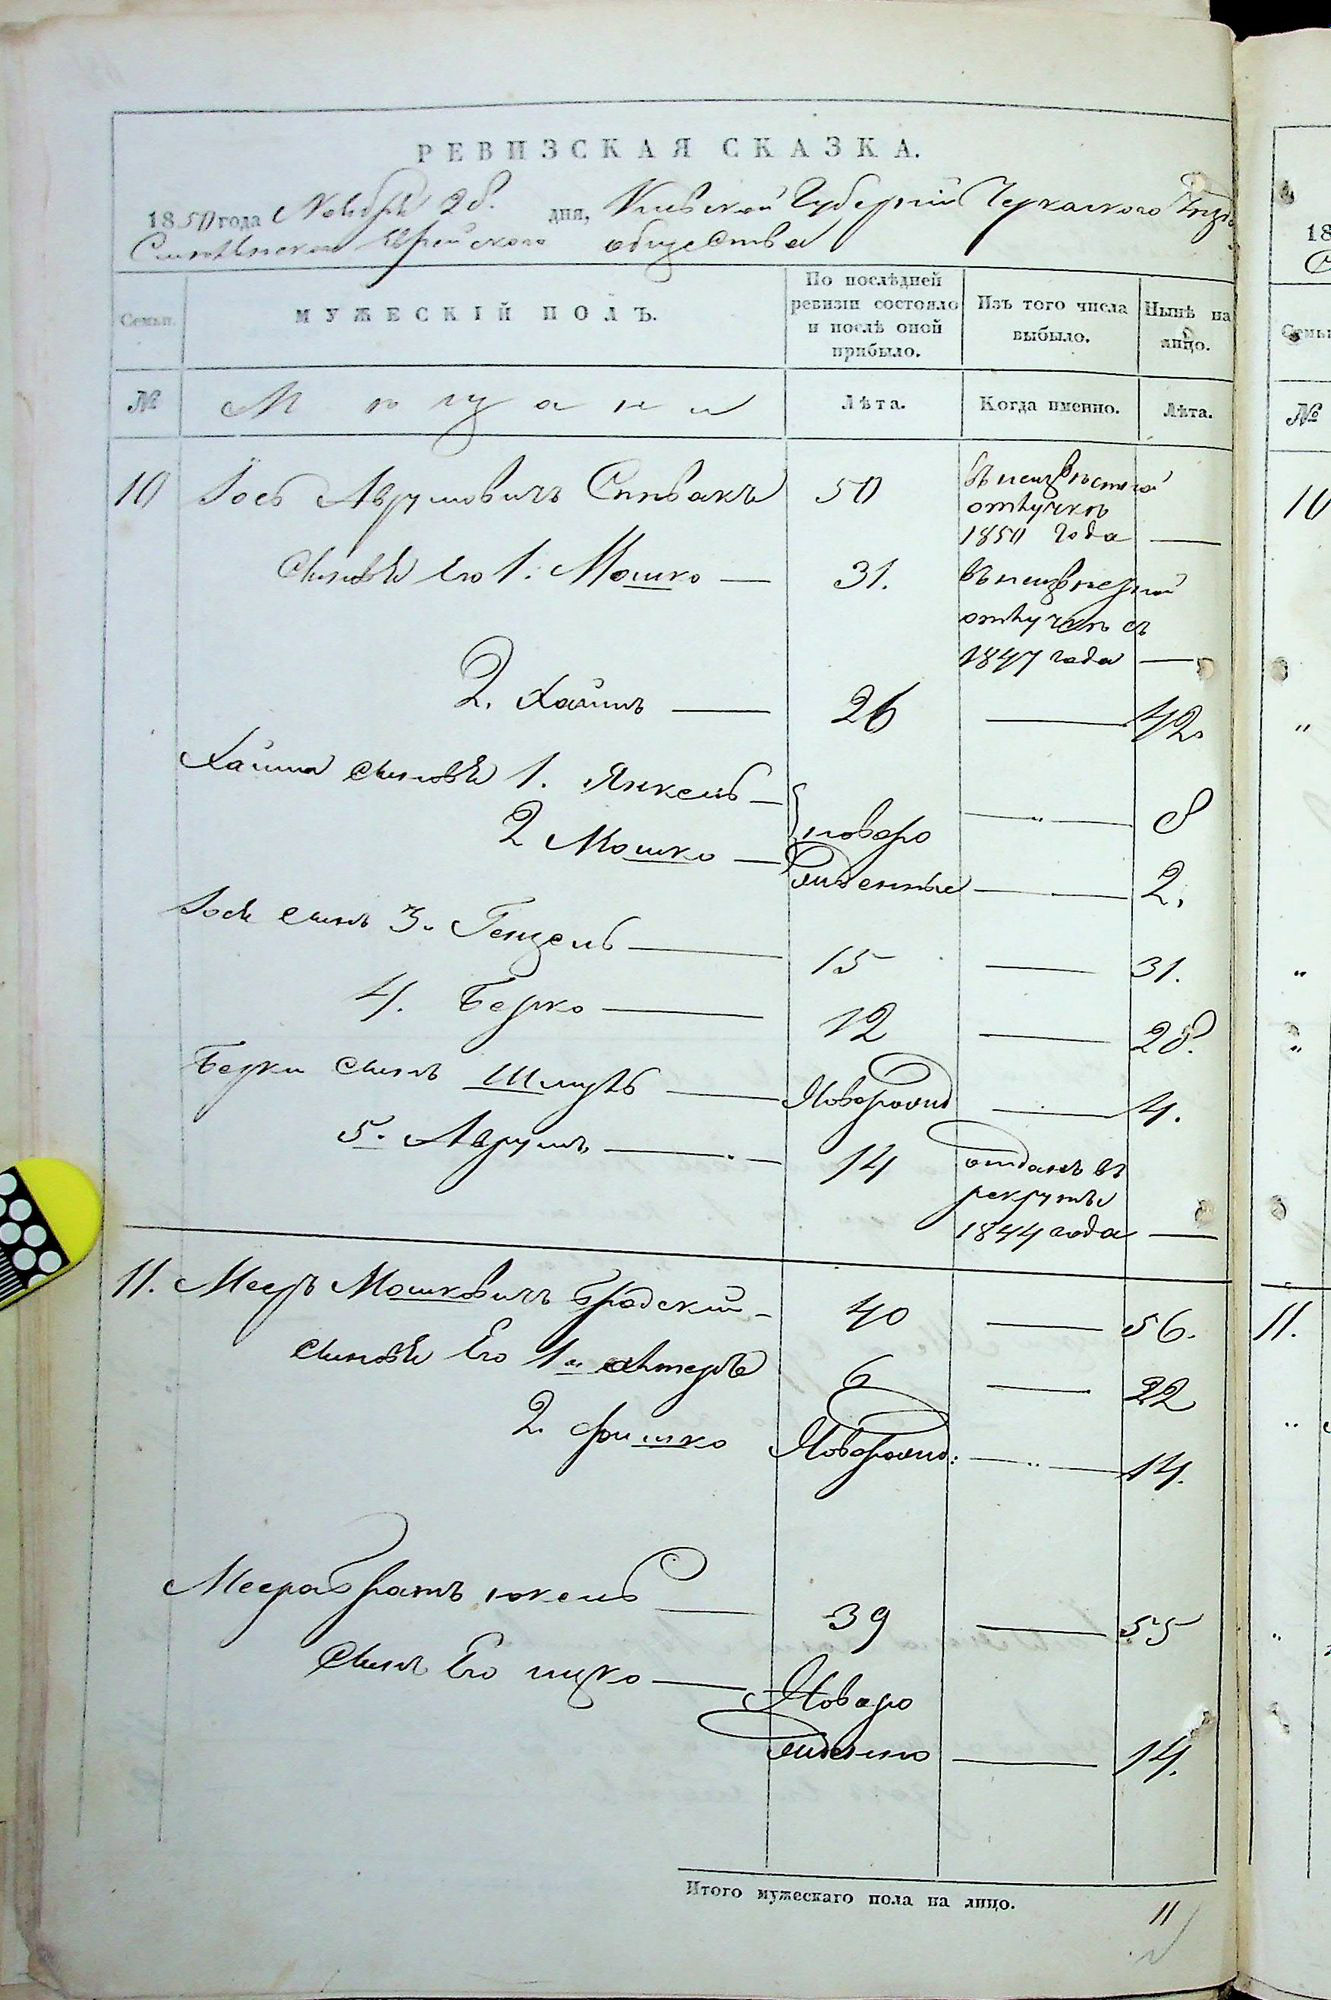 РЕВИЗСКАЯ СКАЗКА.
1850 года Ноября 28. дня, Киевской Губернiи Черкаского Уезда
Смелянского Еврейского общества
Семьи. МУЖЕСКІЙ ПОЛЪ. По послѣдней ревизіи состояло и послѣ оной прибыло. Изъ того числа выбыло. Нынѣ на лицо.
№ Мѣщани Лѣта. Когда именно. Лѣта.
10 Іось Аврумовичъ Спѣвакъ 50 въ неизвѣстной
отлучкѣ
1850 года —
Сыновья Его 1. Мошко — 31. въ неизвѣстной
отлучкѣ съ
1847 года —
2. Хаимъ — 26 — 42.
Хаима сыновья 1. Янкель — новоро — " — 8
2 Мошко — жденные — 2.
Іося сынъ 3. Гензель — 15 — 31.
4. Берко — 12 — 28.
Берки сынъ Шмуль — Новорожд — 4.
5. Аврумъ — 14 отданъ въ
рекруты
1844 года —
11. Мееръ Мошковичъ Бродский — 40 — 56.
сыновья Его 1й 6 — 22
2. Фишко Новорожд: — " — 14.
Меера братъ Юкель — 39 — 55
Сынъ Его Ицко — Новоро
жденно — 14.
Итого мужескаго пола на лицо. 11
18
Семьи
№
10
11.